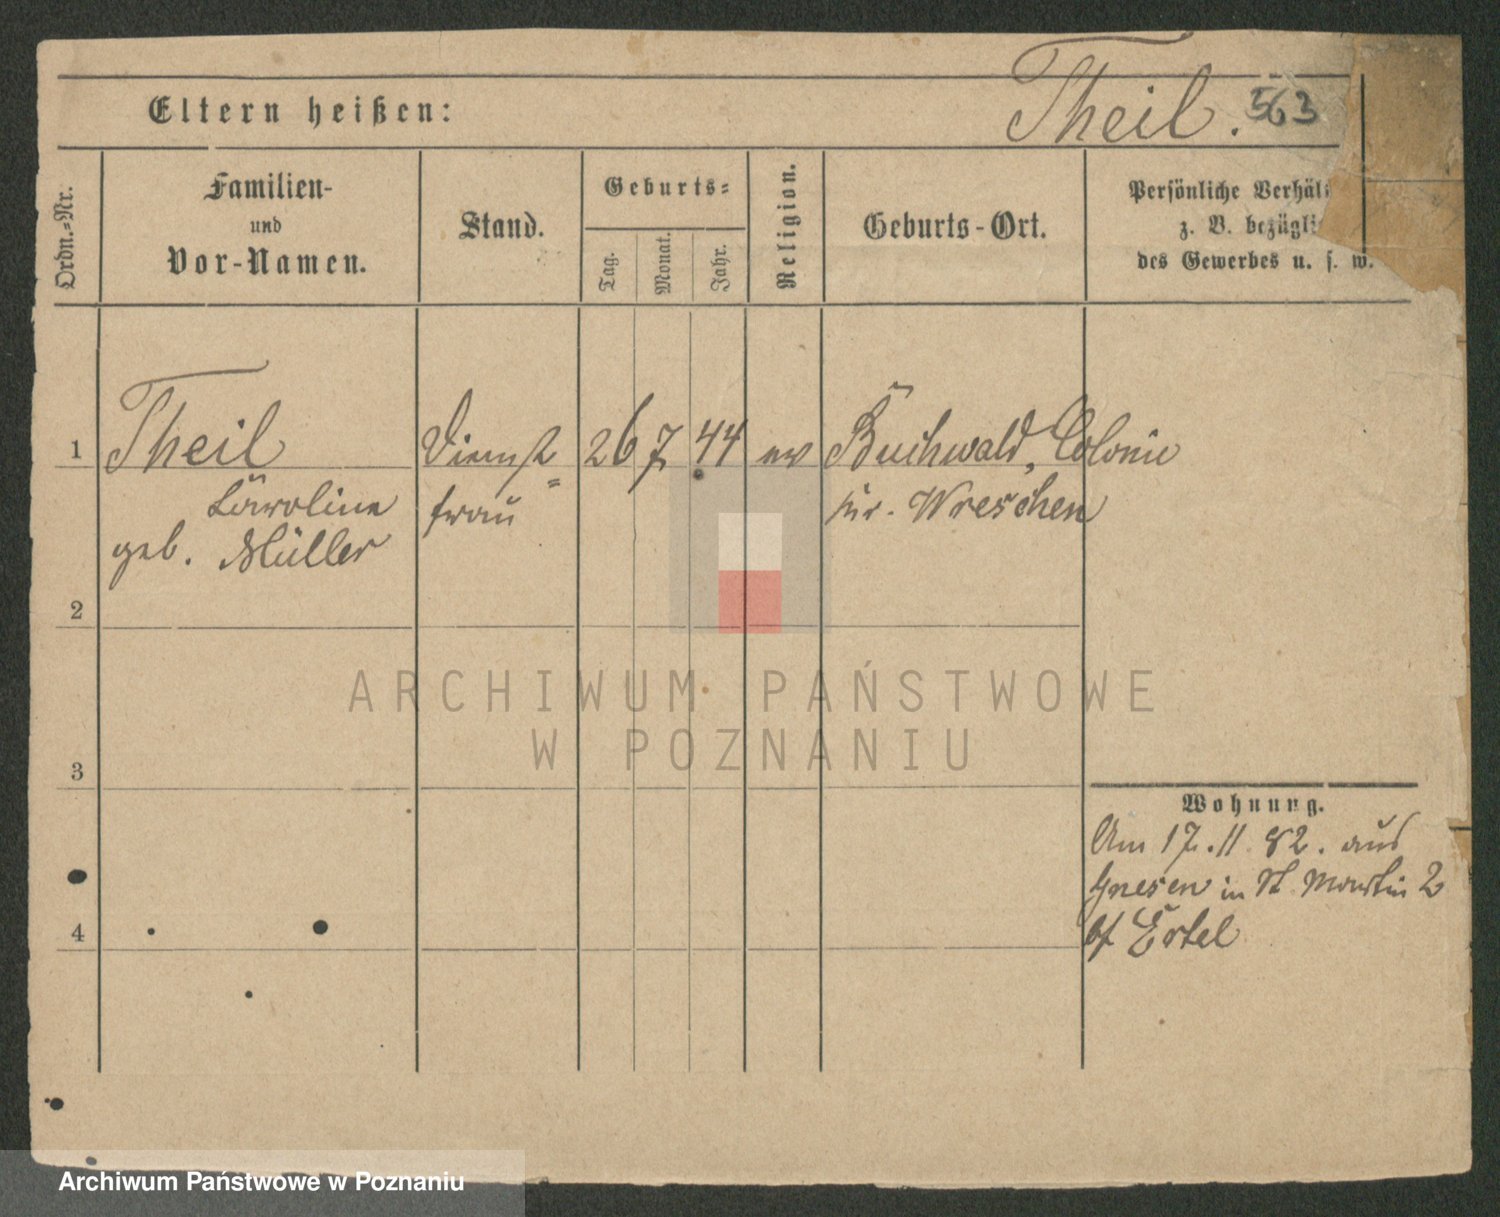 Theil. 563
Eltern heißen:
Ordn.-Nr.
Familien-
und
Vor-Namen.
Stand.
Geburts-
Tag.
Monat.
Jahr.
Religion.
Geburts-Ort.
Persönliche Verhäl
z. B. bezügli
des Gewerbes u. s. w.
1 Theil Dienst= 26 7 44 ev Buchwald, Colonie
Caroline frau Kr. Wreschen
geb. Müller
2
3
4
Wohnung.
Am 17.11.82. aus
Gnesen in St. Martin 2
bf Ertel
ARCHIWUM PAŃSTWOWE
W POZNANIU
Archiwum Państwowe w Poznaniu